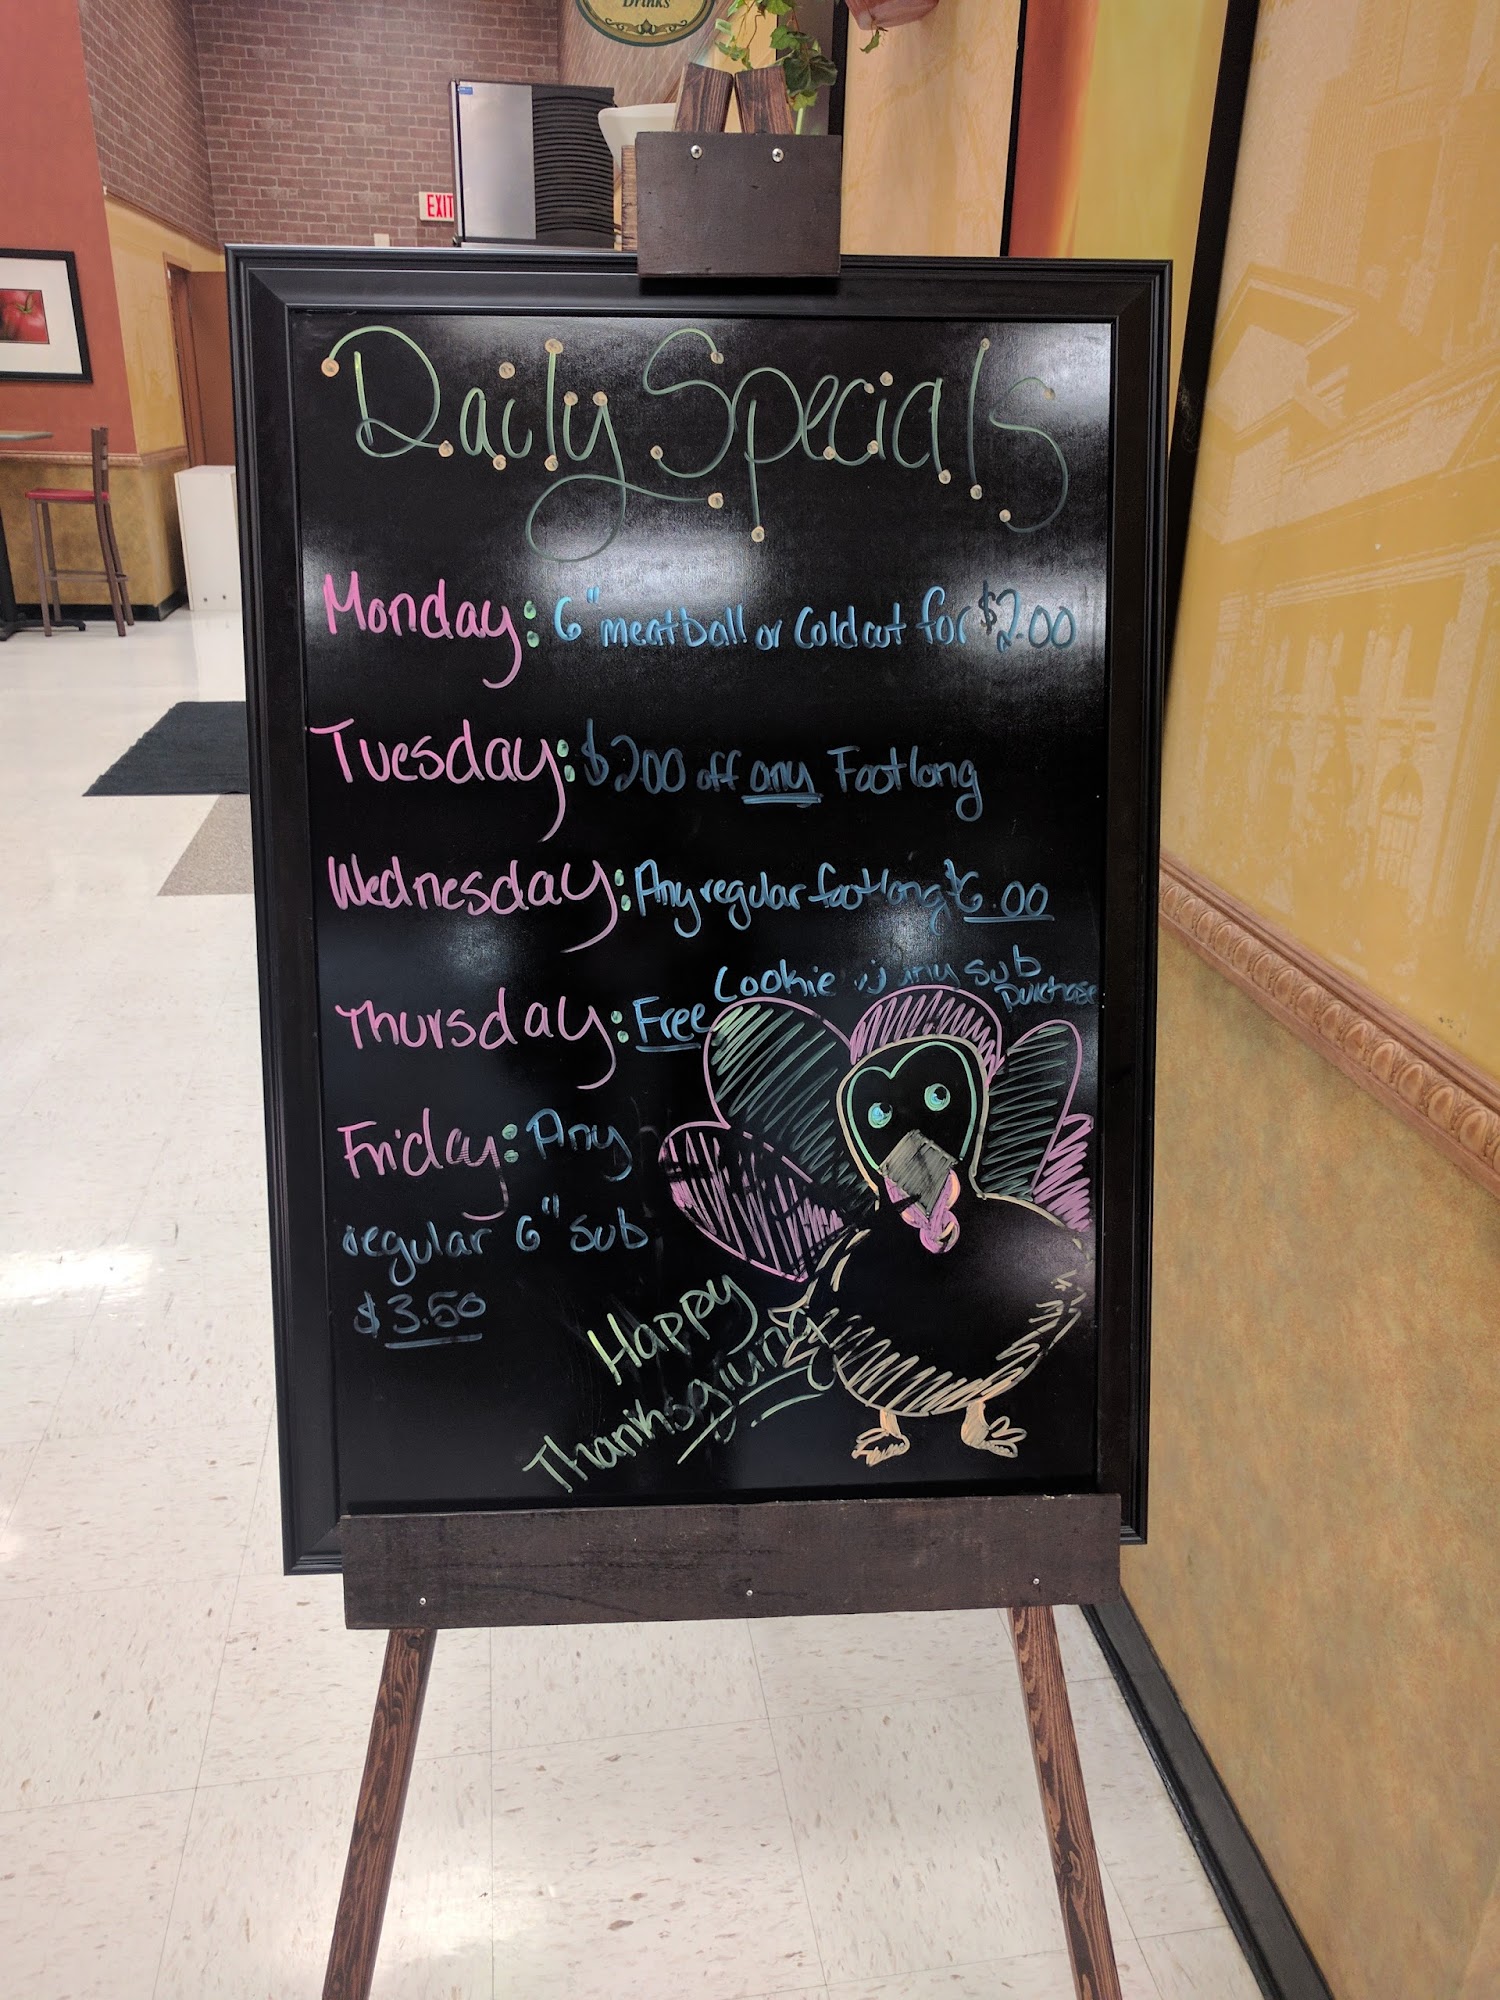 Drinks
EXIT
Daily Specials
Monday: 6" meatball or Coldcut for $2.00
Tuesday: $200 off any Footlong
Wednesday: Any regular footlong $6.00
Thursday: Free Cookie w/ any sub
purchase
Friday: Any
regular 6" sub
$3.50
Happy
Thanksgiving